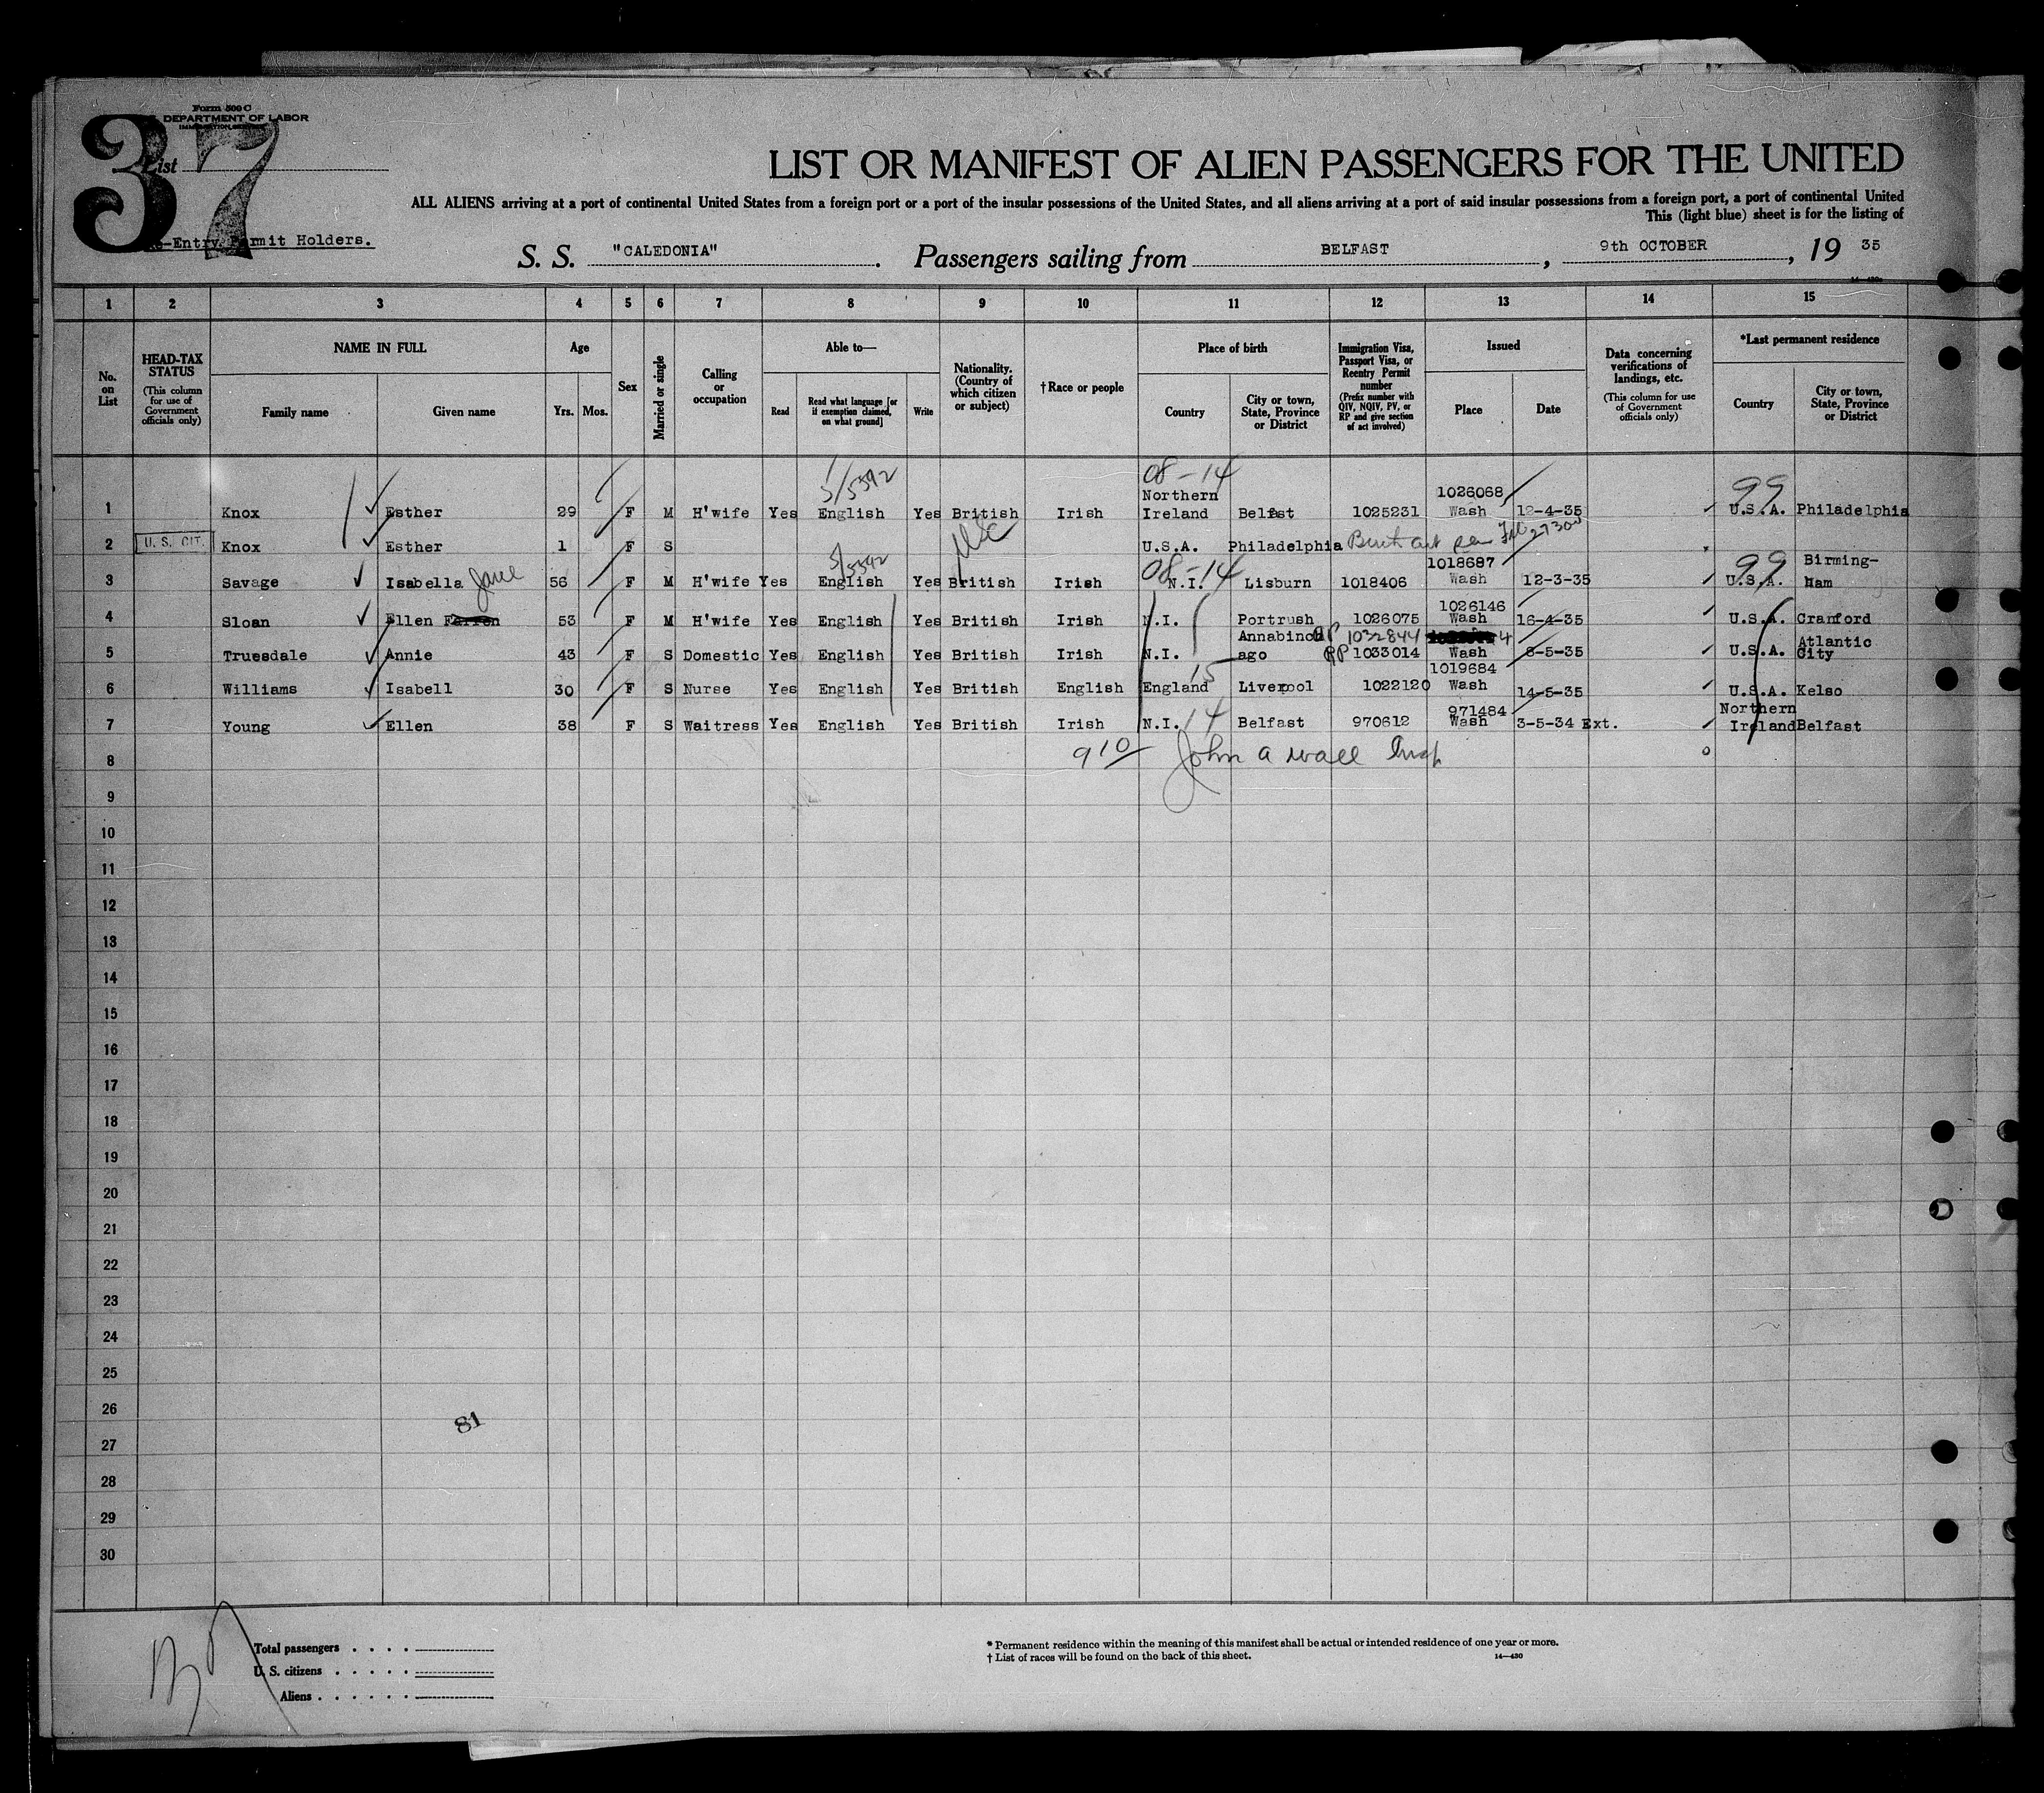 Form 500 C
DEPARTMENT OF LABOR
37
List
LIST OR MANIFEST OF ALIEN PASSENGERS FOR THE UNITED
ALL ALIENS arriving at a port of continental United States from a foreign port or a port of the insular possessions of the United States, and all aliens arriving at a port of said insular possessions from a foreign port, a port of continental United
This (light blue) sheet is for the listing of
Re-Entry Permit Holders.
S. S. "CALEDONIA". Passengers sailing from BELFAST, 9th OCTOBER, 19 35
1 2 3 4 5 6 7 8 9 10 11 12 13 14 15
No. on List
HEAD-TAX STATUS (This column for use of Government officials only)
NAME IN FULL
Family name Given name
Age
Yrs. Mos.
Sex
Married or single
Calling or occupation
Able to—
Read Read what language [or if exemption claimed, on what ground] Write
Nationality. (Country of which citizen or subject)
†Race or people
Place of birth
Country City or town, State, Province or District
Immigration Visa, Passport Visa, or Reentry Permit number (Prefix number with QIV, NQIV, PV, or RP and give section of act involved)
Issued
Place Date
Data concerning verifications of landings, etc. (This column for use of Government officials only)
*Last permanent residence
Country City or town, State, Province or District
5/5592 08-14 99
1 Knox Esther 29 F M H'wife Yes English Yes British Irish Northern Ireland Belfast 1025231 1026068 Wash 12-4-35 U.S.A. Philadelphia
2 U. S. CIT. Knox Esther 1 F S U.S.A. Philadelphia Birth cert
5/5592 08-14 99
3 Savage Isabella Jane 56 F M H'wife Yes English Yes British Irish N.I. Lisburn 1018406 1018687 Wash 12-3-35 U.S.A. Birming-ham
4 Sloan Ellen Farren 53 F M H'wife Yes English Yes British Irish N.I. Portrush 1026075 1026146 Wash 16-4-35 U.S.A. Cranford
5 Truesdale Annie 43 F S Domestic Yes English Yes British Irish N.I. Annabinod ago RP 1032844 RP 1033014 4 Wash 8-5-35 U.S.A. Atlantic City
6 Williams Isabell 30 F S Nurse Yes English Yes British English England 15 Liverpool 1022120 1019684 Wash 14-5-35 U.S.A. Kelso
7 Young Ellen 38 F S Waitress Yes English Yes British Irish N.I. 14 Belfast 970612 971484 Wash 3-5-34 Ext. Northern Ireland Belfast
8 9 10 John a Wall Insp
9
10
11
12
13
14
15
16
17
18
19
20
21
22
23
24
25
26
81
27
28
29
30
Total passengers . . . .
U. S. citizens . . . . .
Aliens . . . . . .
* Permanent residence within the meaning of this manifest shall be actual or intended residence of one year or more.
† List of races will be found on the back of this sheet. 14—430